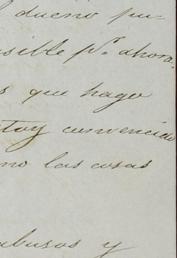 dueño pu-
sible pr. ahora.
s que hago
stoy convencido
mo las cosas
abusos y